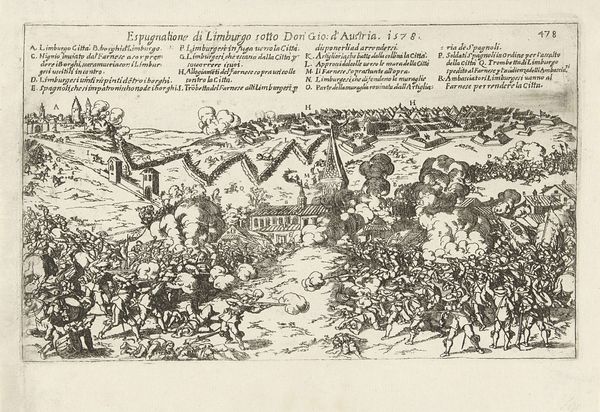 Espugnatione di Limburgo sotto Don Gio: d'Austria. 1578.
478
A. Limburgo Città. B. borghi di Limburgo.
C. Nignio inviato dal Farnese a sorpre
dere i borghi,
uccisi li in contro.
D. Limburgesi vinti rispinti dētro i borghi.
E. Spagnoli, che si impatroniscono de i borghi.
F. Limburgesi in fuga verso la Città.
G. Limburgesi, che escano dalla Città p
soccorrer i suoi.
H. Alloggiamēti del Farnese sopra un colle
contro la Città.
I. Trōbetta del Farnese alli Limburgesi p
disponerli ad arrendersi.
K. Artigliaria, che batte dalla collina la Città.
L. Aprocci dal colle verso le mura della Città
M. Il Farnese soprastante all'opra.
N. Limburgesi che difendono le muraglie
O. Parte della muraglia rovinata dall'Artiglia:
ria de Spagnoli.
P. Soldati Spagnoli in Ordine per l'assalto
della Città Q. Trombetta di Limburgo
spedito al Farnese p l'audienza dell'Ambascia
R. Ambasciatori Limburgesi vanno al
Farnese per rendere la Città.
A
H
H